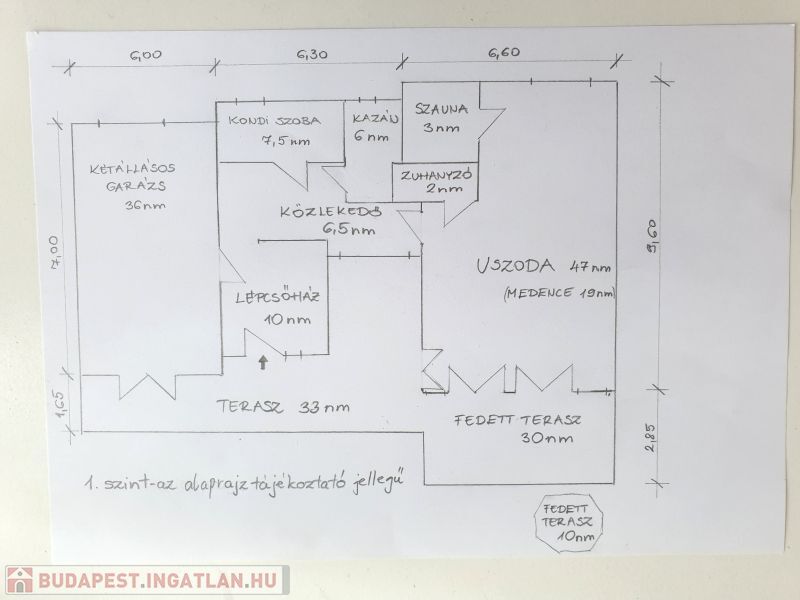 6,00
6,30
6,60
KÉTÁLLÁSOS
GARÁZS
36nm
KONDI SZOBA
7,5nm
KAZÁN
6nm
SZAUNA
3nm
ZUHANYZÓ
2nm
KÖZLEKEDŐ
6,5nm
7,00
9,60
USZODA 47nm
(MEDENCE 19nm)
LÉPCSŐHÁZ
10nm
1,65
TERASZ 33nm
FEDETT TERASZ
30nm
2,85
1. szint-az alaprajz tájékoztató jellegű
FEDETT
TERASZ
10nm
BUDAPEST.INGATLAN.HU